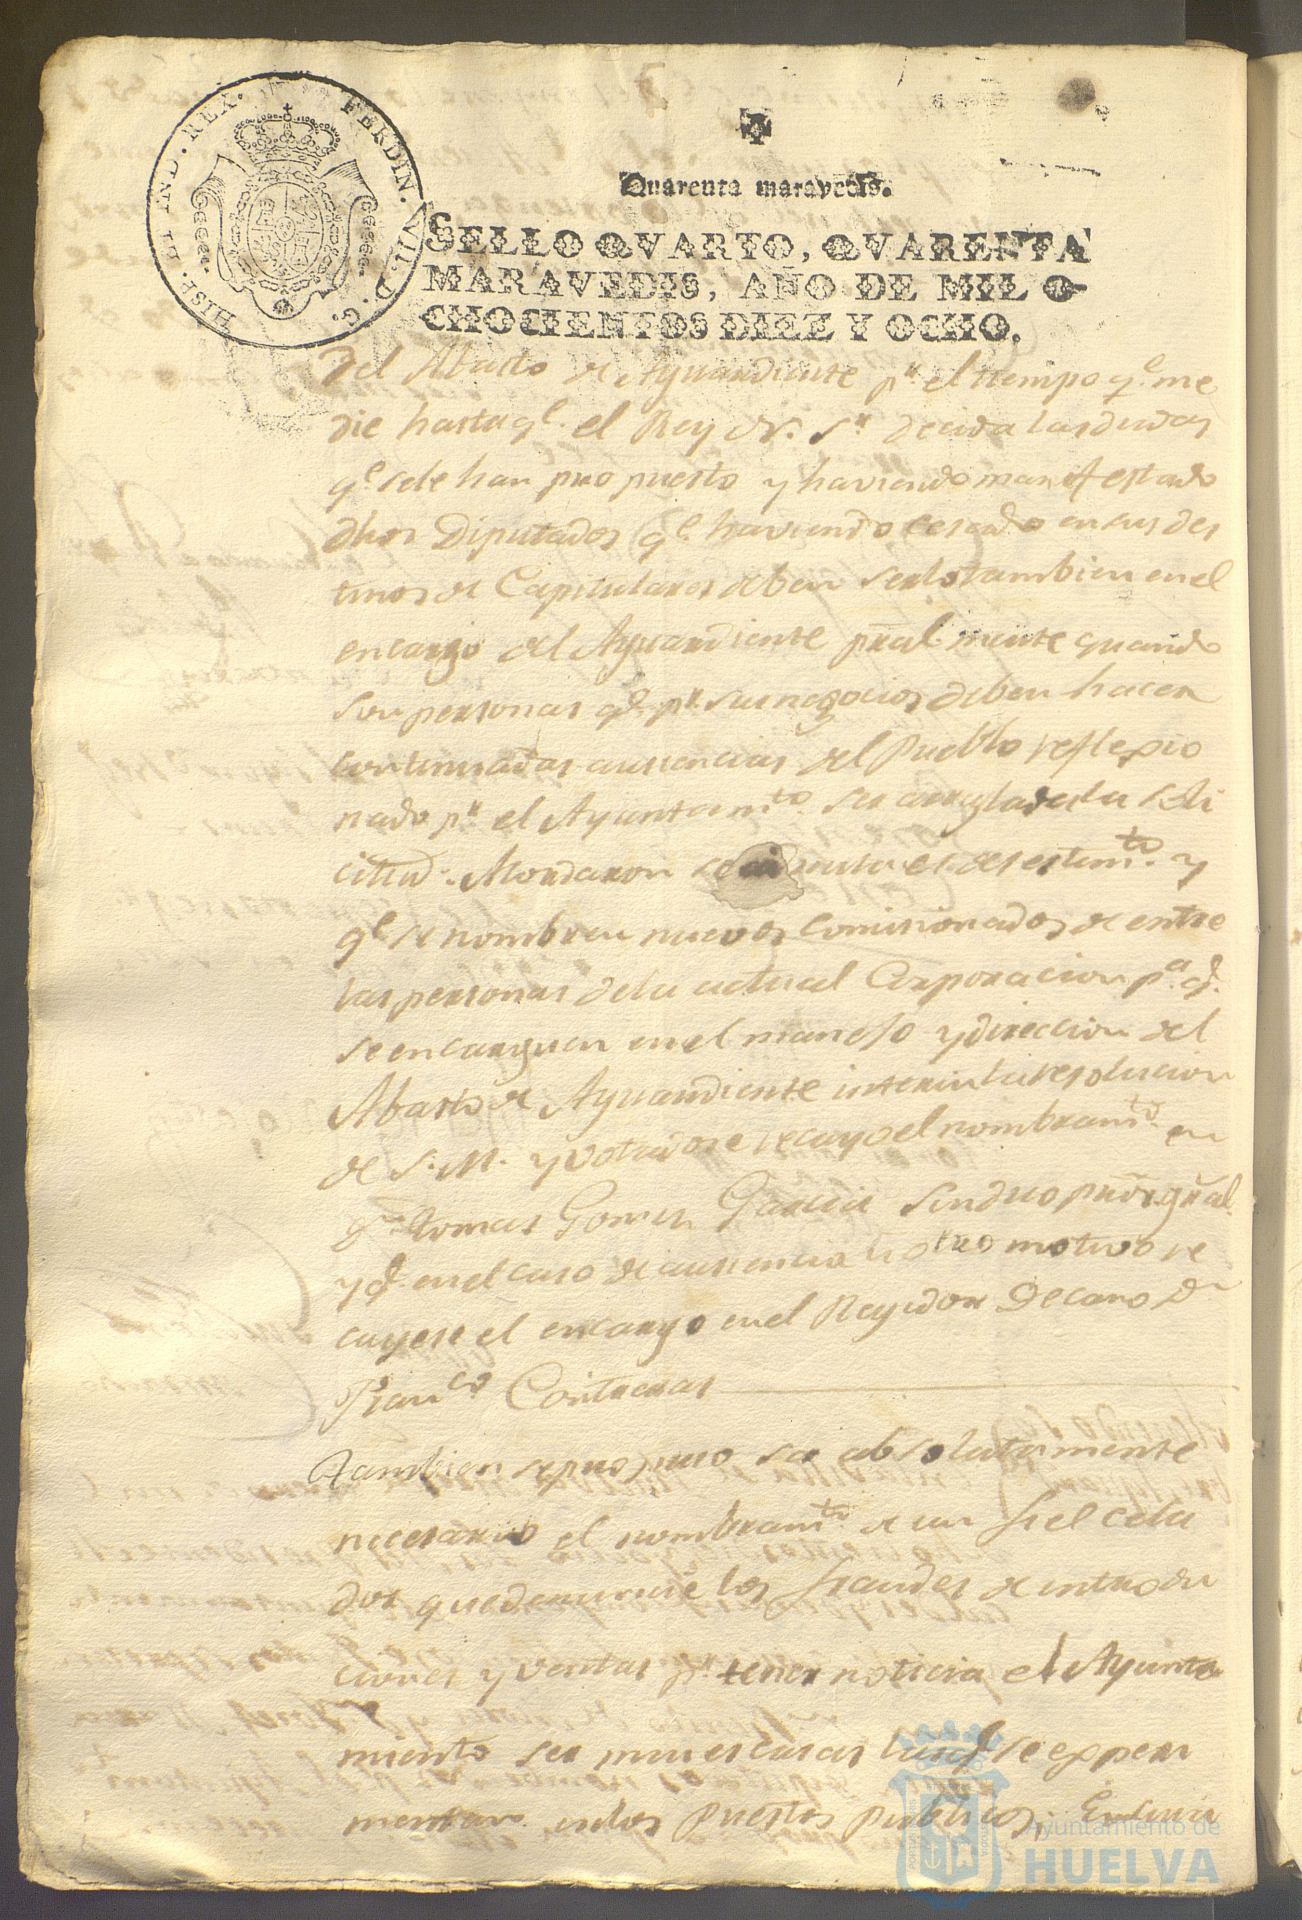 HISP. ET IND. REX. FERDIN. VII. D. G.
Quarenta maravedis.
SELLO QVARTO, QVARENTA
MARAVEDIS, AÑO DE MIL O-
CHOCIENTOS DIEZ Y OCHO.
del Abasto de Aguardiente pr. el tiempo qe. me
die hasta qe. el Rey N. Sr. decida las dudas
qe. se le han propuesto y haviendo manifestado
dhos Diputados qe. haviendo cesado en sus des
tinos de Capitulares deben serlo tambien en el
encargo del Aguardiente pralmente quando
son personas qe. pr. sus negocios deben hacer
continuadas ausencias del Pueblo reflexio
nado pr. el Ayuntamto. ser arreglada la soli
citud. Mordaron se admita el desestimto. y
qe. se nombren nuevos comisionados de entre
las personas dela actual Corporacion pa. qe.
se encarguen en el manejo y direccion del
Abasto de Aguardiente interin la resolucion
de S. M. y votadose recayo el nombramto. en
Dn. Tomas Gomez Garcia Sindico pror. gral.
y qe. en el caso de ausencia u otro motivo re
cayese el encargo en el Regidor Decano Dn
Franco. Contreras
Tambien se propuso ser absolutamente
necesario el nombramto. de un fiel cela
dor que denuncie los fraudes de introdu
ciones y ventas pr. tener noticia el Ayunta
miento ser muy escasas las qe. se experi
mentan en los Puestos publicos;
Ayuntamiento de
HUELVA